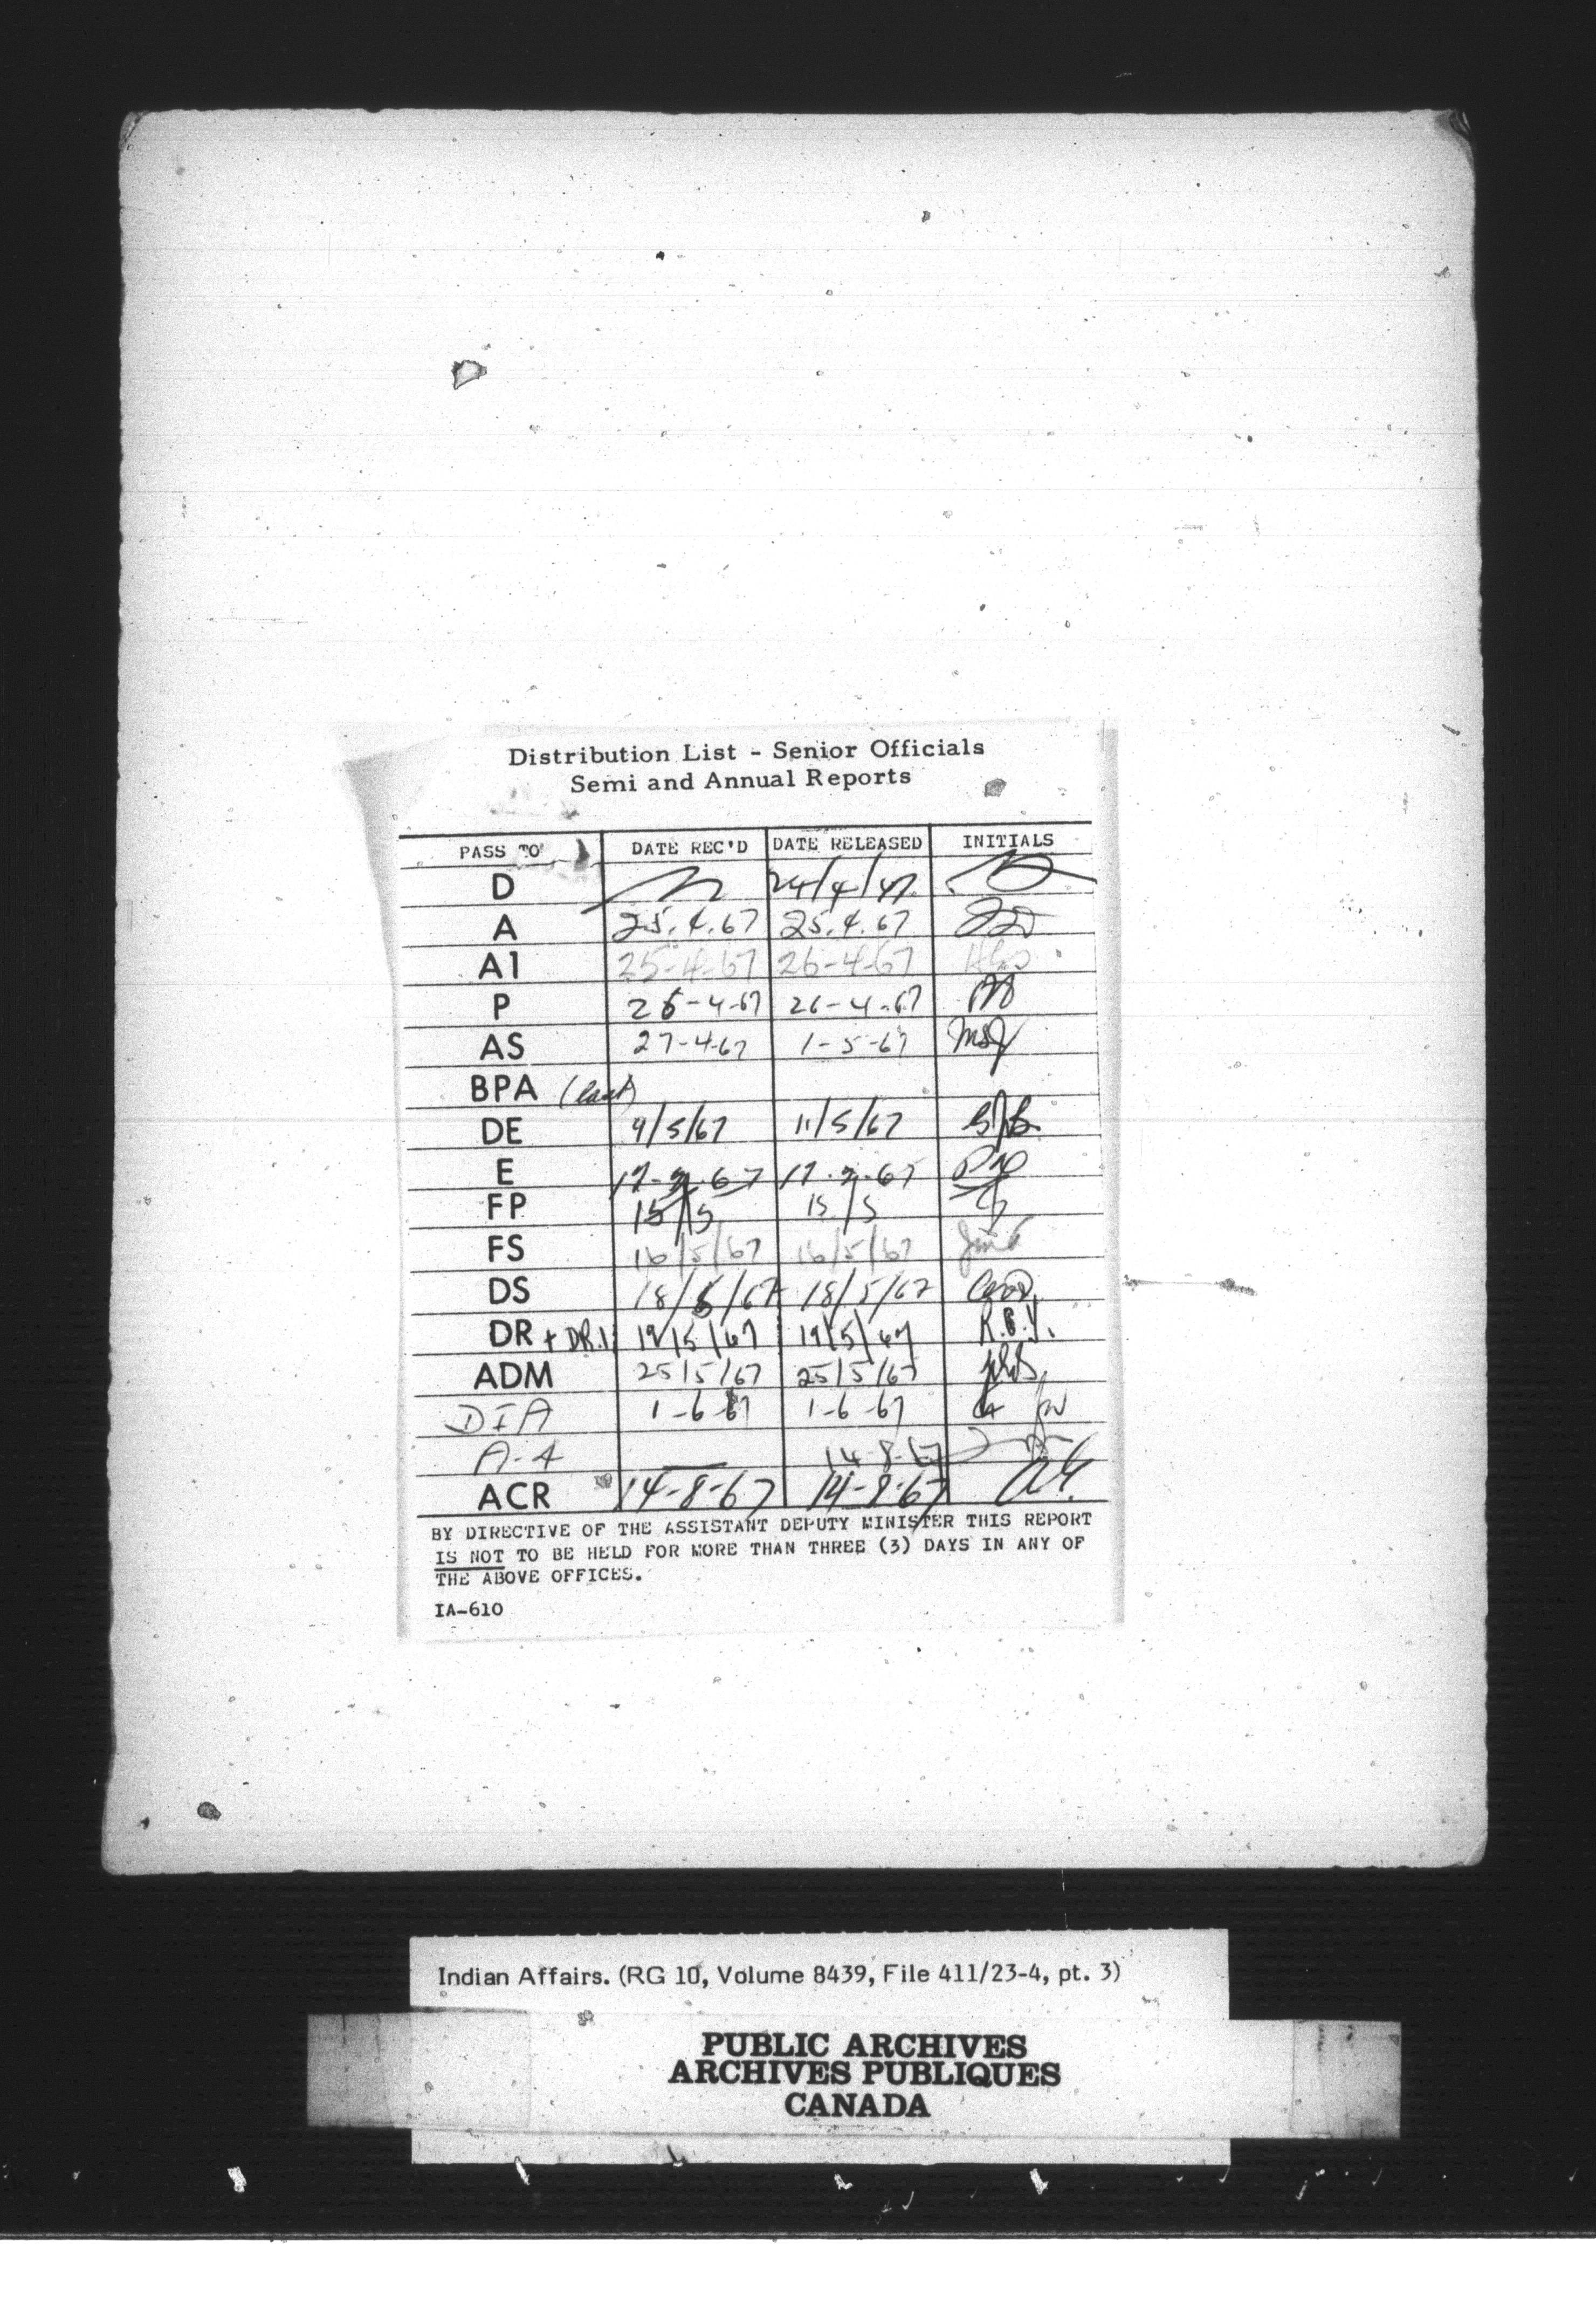 Distribution List - Senior Officials
Semi and Annual Reports
PASS TO DATE REC'D DATE RELEASED INITIALS
D 24/4/67
A 25.4.67 25.4.67
A1 25-4-67 26-4-67
P 26-4-67 26-4-67
AS 27-4-67 1-5-67
BPA (last)
DE 9/5/67 11/5/67
E
FP 15/5 15/5
FS 16/5/67 16/5/67
DS 18/5/67 18/5/67
DR + DR.1. 19/5/67 19/5/67 R.B.Y.
ADM 25/5/67 25/5/67
DIA 1-6-67 1-6-67
A-4 14-8-67
ACR 14-8-67 14-8-67
BY DIRECTIVE OF THE ASSISTANT DEPUTY MINISTER THIS REPORT
IS NOT TO BE HELD FOR MORE THAN THREE (3) DAYS IN ANY OF
THE ABOVE OFFICES.
IA-610
Indian Affairs. (RG 10, Volume 8439, File 411/23-4, pt. 3)
PUBLIC ARCHIVES
ARCHIVES PUBLIQUES
CANADA